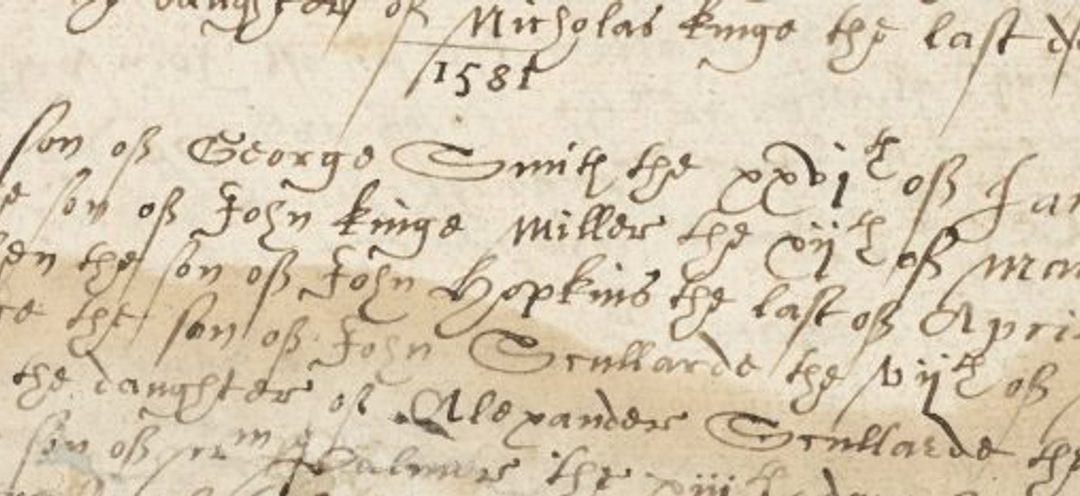 daughter of Nicholas kinge the last
1581
son off George Smith the xxvith off Jan
son off John kinge Miller the xijth off Mar
the son off John Hopkins the last off Apri
the son off John Scullarde the vijth off
the daughter of Alexander Scullarde the
son off Palmer the xiijth